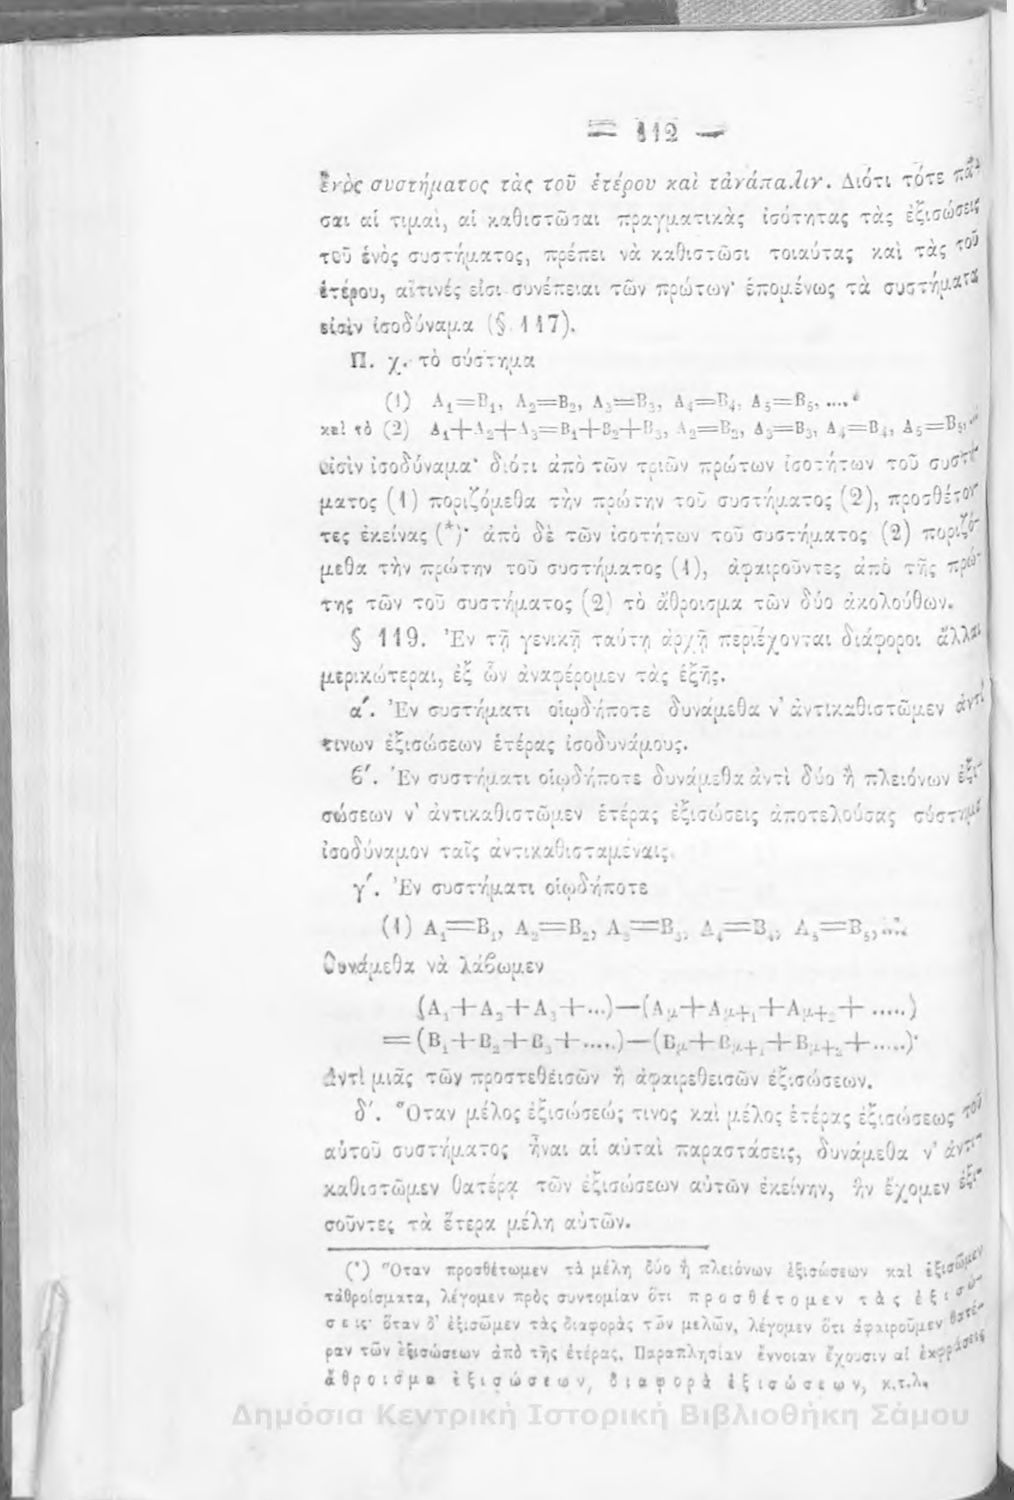 — 112 —
ἑνὸς συστήματος τὰς τοῦ ἑτέρου καὶ τἀνάπαλιν. Διότι τότε πᾶ-
σαι αἱ τιμαὶ, αἱ καθιστῶσαι πραγματικὰς ἰσότητας τὰς ἐξισώσεις
τοῦ ἑνὸς συστήματος, πρέπει νὰ καθιστῶσι τοιαύτας καὶ τὰς τοῦ
ἑτέρου, αἵτινές εἰσι συνέπειαι τῶν πρώτων· ἑπομένως τὰ συστήματα
εἰσὶν ἰσοδύναμα (§ 117).
Π. χ. τὸ σύστημα
(1) A₁=B₁, A₂=B₂, A₃=B₃, A₄=B₄, A₅=B₅, ....
καὶ τὸ (2) A₁+A₂+A₃=B₁+B₂+B₃, A₂=B₂, A₃=B₃, A₄=B₄, A₅=B₅, ...
εἰσὶν ἰσοδύναμα· διότι ἀπὸ τῶν τριῶν πρώτων ἰσοτήτων τοῦ συστή-
ματος (1) ποριζόμεθα τὴν πρώτην τοῦ συστήματος (2), προσθέτον-
τες ἐκείνας (*)· ἀπὸ δὲ τῶν ἰσοτήτων τοῦ συστήματος (2) ποριζό-
μεθα τὴν πρώτην τοῦ συστήματος (1), ἀφαιροῦντες ἀπὸ τῆς πρώ-
της τῶν τοῦ συστήματος (2) τὸ ἄθροισμα τῶν δύο ἀκολούθων.
§ 119. Ἐν τῇ γενικῇ ταύτῃ ἀρχῇ περιέχονται διάφοροι ἄλλαι
μερικώτεραι, ἐξ ὧν ἀναφέρομεν τὰς ἑξῆς.
α΄. Ἐν συστήματι οἱῳδήποτε δυνάμεθα ν' ἀντικαθιστῶμεν ἀντί
τινων ἐξισώσεων ἑτέρας ἰσοδυνάμους.
ϐ΄. Ἐν συστήματι οἱῳδήποτε δυνάμεθα ἀντὶ δύο ἢ πλειόνων ἐξι-
σώσεων ν' ἀντικαθιστῶμεν ἑτέρας ἐξισώσεις ἀποτελούσας σύστημα
ἰσοδύναμον ταῖς ἀντικαθισταμέναις.
γ΄. Ἐν συστήματι οἱῳδήποτε
(1) A₁=B₁, A₂=B₂, A₃=B₃, A₄=B₄, A₅=B₅, ...
δυνάμεθα νὰ λάϐωμεν
(A₁+A₂+A₃+...)—(Aμ+Aμ+₁+Aμ+₂+.....)
=(B₁+B₂+B₃+.....)—(Bμ+Bμ+₁+Bμ+₂+.....)·
ἀντὶ μιᾶς τῶν προστεθεισῶν ἢ ἀφαιρεθεισῶν ἐξισώσεων.
δ΄. Ὅταν μέλος ἐξισώσεώς τινος καὶ μέλος ἑτέρας ἐξισώσεως τοῦ
αὐτοῦ συστήματος ἦναι αἱ αὐταὶ παραστάσεις, δυνάμεθα ν' ἀντι-
καθιστῶμεν θατέρᾳ τῶν ἐξισώσεων αὐτῶν ἐκείνην, ἣν ἔχομεν ἐξι-
σοῦντες τὰ ἕτερα μέλη αὐτῶν.
(*) Ὅταν προσθέτωμεν τὰ μέλη δύο ἢ πλειόνων ἐξισώσεων καὶ ἐξισῶμεν
τἀθροίσματα, λέγομεν πρὸς συντομίαν ὅτι προσθέτομεν τὰς ἐξισώ-
σεις· ὅταν δ' ἐξισῶμεν τὰς διαφορὰς τῶν μελῶν, λέγομεν ὅτι ἀφαιροῦμεν θατέ-
ραν τῶν ἐξισώσεων ἀπὸ τῆς ἑτέρας. Παραπλησίαν ἔννοιαν ἔχουσιν αἱ ἐκφράσεις
ἄθροισμα ἐξισώσεων, διαφορὰ ἐξισώσεων, κ.τ.λ.
Δημόσια Κεντρική Ιστορική Βιβλιοθήκη Σάμου